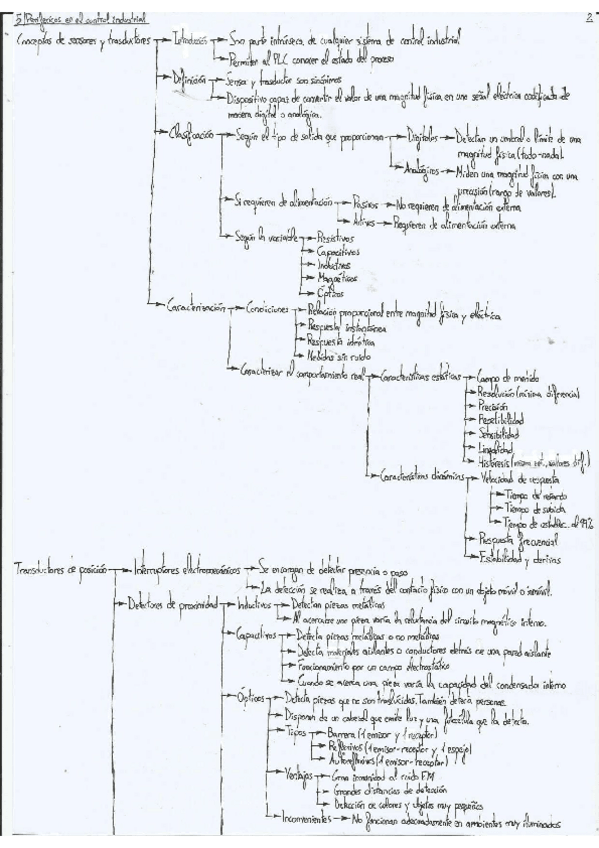 5 Periféricos en el control industrial
2
Conceptos de sensores y trasductores → Introducción → Son parte intrínseca de cualquier sistema de control industrial
→ Permiten al PLC conocer el estado del proceso
→ Definición → Sensor y trasductor son sinónimos
→ Dispositivo capaz de convertir el valor de una magnitud física en una señal eléctrica codificada de
manera digital o analógica.
→ Clasificación → Según el tipo de salida que proporcionan → Digitales → Detectan un umbral o límite de una
magnitud física (todo-nada).
→ Analógicos → Miden una magnitud física con una
precisión (rango de valores).
→ Si requieren de alimentación → Pasivos → No requieren de alimentación externa
→ Activos → Requieren de alimentación externa
→ Según la variable → Resistivos
→ Capacitivos
→ Inductivos
→ Magnéticos
→ Ópticos
→ Caracterización → Condiciones → Relación proporcional entre magnitud física y eléctrica
→ Respuesta instantánea
→ Respuesta idéntica
→ Medidas sin ruido
→ Caracterizar el comportamiento real → Características estáticas → Campo de medida
→ Resolución (mínima diferencia)
→ Precisión
→ Repetibilidad
→ Sensibilidad
→ Linealidad
→ Histéresis ( valores dif.)
→ Características dinámicas → Velocidad de respuesta
→ Tiempo de retardo
→ Tiempo de subida
→ Tiempo de establec. al 99%
→ Respuesta frecuencial
→ Estabilidad y derivas
Transductores de posición → Interruptores electromecánicos → Se encargan de detectar presencia o paso
→ La detección se realiza a través del contacto físico con un objeto móvil o terminal.
→ Detectores de proximidad → Inductivos → Detectan piezas metálicas
→ Al acercarse una pieza varía la reluctancia del circuito magnético interno.
→ Capacitivos → Detecta piezas metálicas o no metálicas
→ Detecta materiales aislantes o conductores detrás de una pared aislante
→ Funcionamiento por un campo electrostático
→ Cuando se acerca una pieza varía la capacidad del condensador interno
→ Ópticos → Detecta piezas que no son translúcidas. También detecta personas
→ Disponen de un cabezal que emite luz y una fotocélula que la detecta.
→ Tipos → Barrera (1 emisor y 1 receptor)
→ Reflexivos (1 emisor-receptor y 1 espejo)
→ Autoreflexivos (1 emisor-receptor)
→ Ventajas → Gran inmunidad al ruido EM
→ Grandes distancias de detección
→ Detección de colores y objetos muy pequeños
→ Inconvenientes → No funcionan adecuadamente en ambientes muy iluminados